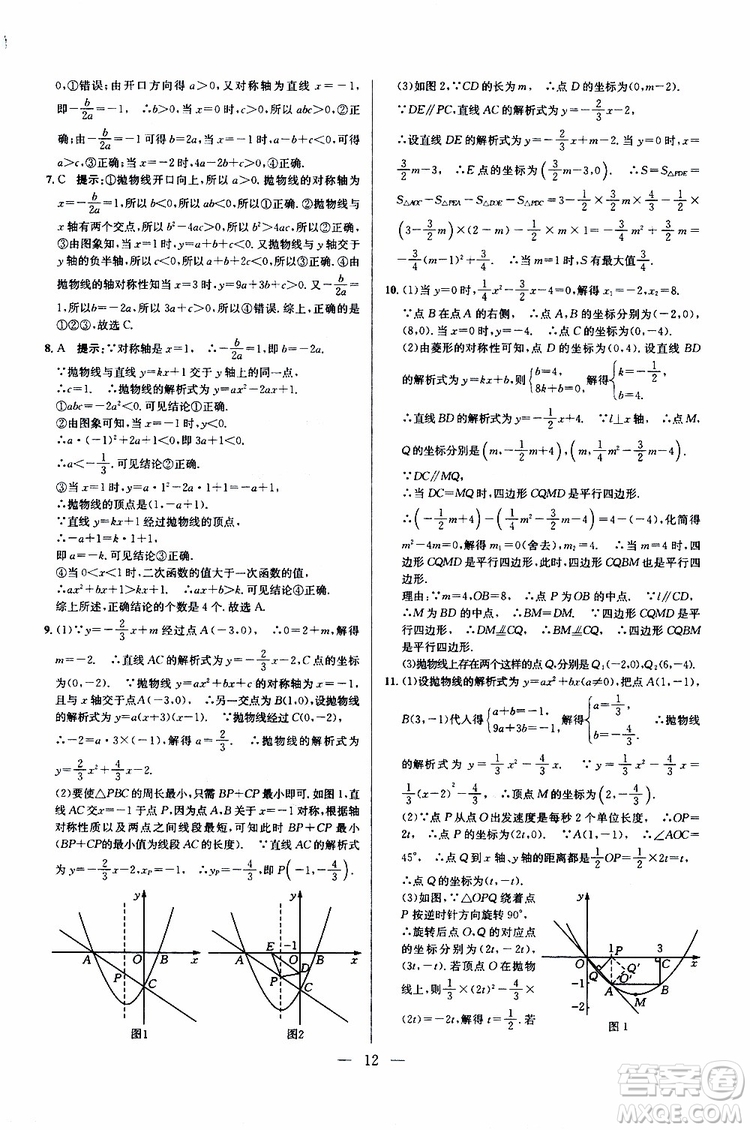 0,①错误;由开口方向得 a>0,又对称轴为直线 x=-1,
即-b/2a=-1 ∴b>0,c>0,所以 abc>0,所以②正
确;由-b/2a=-1可得b=2a,所以③正确;由①可得
a>c,③正确;4a>c>0,所以④正确.
7.C 提示:①抛物线开口向上,所以 a>0.抛物线的对称轴为
x=-b/2a=1,所以 b<0,所以①正确.②抛物线与
x 轴有两个交点,所以 b²-4ac>0,所以②正确.
③由图象知,当 x=1 时,y<0,抛物线与 y 轴交于
y 轴的负半轴,所以 c<0,所以③正确.④由抛物
线的轴对称性知当 x=3 时,y=9a+3b+c>0.又
b=-2a,所以 3a+c>0.所以④错误.综上,正确的是
①②③,故选 C.
8.A 提示:∵对称轴是 x=1, ∴-b/2a=1 ∴b=-2a.
∵抛物线与直线 y=kx+1 交于 y 轴上的同一点,
∴c=1. ∴抛物线的解析式为 y=ax²-2ax+1.
①abc=-2a²<0.可见结论①正确.
②由图象可知:当 x=-1 时,y<0.
∴a·(-1)²+2a+1<0.
∴a<-1/3.可见结论②正确.
③当 x=1 时,y=a·1²-2a·1+1=-a+1.
∴抛物线的顶点是(1,-a+1).
∵直线 y=kx+1 经过抛物线的顶点,
∴-a+1=k+1.
即 a=-k.可见结论③正确.
④当 0<x<1 时,二次函数的值大于一次函数的值.
∴ax²+bx+1>kx+1.即 ax²+bx>kx.可见结论④正确.
综上所述,正确结论的个数是 4 个.故选 A.
9.(1)∵y=-2/3x+m 经过点 A(-3,0), ∴0=2+m,解得
m=-2. ∴直线 AC 的解析式为 y=-2/3x-2,C 点的坐标
为(0,-2). ∵抛物线 y=ax²+bx+c 的对称轴为 x=-1,
且与x轴交于点A(-3,0), ∴另一交点为B(1,0),设抛物线
的解析式为 y=a(x+3)(x-1). ∵抛物线经过 C(0,-2),
∴-2=a·3×(-1),解得 a=2/3, ∴抛物线的解析式为
y=2/3x²+4/3x-2.
(2)要使△PBC 的周长最小,只需 BP+CP 最小即可.如图 1,直
线 AC 与 x=-1 交于点 P,因为点 A,B 关于 x=-1 对称,根据轴
对称性质以及两点之间线段最短,可知此时 BP+CP 最小
(BP+CP的最小值为线段 AC 的长度). ∵直线 AC 的解析式
为 y=-2/3x-2, ∴y_P=-4/3,即 P(-1,-4/3).
y
A O B x
P
C
图1
y
E -1
A O B x
P D
C
图2
(3)如图 2,∵CD 的长为 m, ∴点 D 的坐标为(0,m-2).
∵DE∥PC,直线 AC 的解析式为 y=-2/3x-2,
∴设直线 DE 的解析式为 y=-2/3x+m-2,当 y=0 时,x=
3/2m-3, ∴E 点的坐标为(3/2m-3,0). ∴S=S△PDE=
S△AOC-S△PEA-S△DOE-S△PDC=3-1/2×3/2m×4/3-1/2×
(3-3/2m)×(2-m)-1/2×m×1=-3/4m²+3/2m=
-3/4(m-1)²+3/4, ∴当 m=1 时,S有最大值3/4.
10.(1)当 y=0时,1/4x²-3/2x-4=0,解得 x₁=-2,x₂=8.
∵点 B 在点 A 的右侧, ∴点 A,B 的坐标分别为(-2,0),
(8,0).当 x=0 时,y=-4. ∴点 C 的坐标为(0,-4).
(2)由菱形的对称性可知,点 D 的坐标为(0,4).设直线 BD
的解析式为 y=kx+b,则{b=4, 8k+b=0.解得{k=-1/2, b=4.
∴直线 BD 的解析式为 y=-1/2x+4. ∵l⊥x 轴, ∴点 M,
Q 的坐标分别是(m,-1/2m+4),(m,1/4m²-3/2m-4).
∵DC∥MQ,
∴当 DC=MQ 时,四边形 CQMD 是平行四边形.
∴(-1/2m+4)-(1/4m²-3/2m-4)=4-(-4),化简得
m²-4m=0.解得 m₁=0(舍去),m₂=4. ∴当 m=4 时,四
边形 CQMD 是平行四边形,此时,四边形 CQBM 是平行四
边形.
理由:∵m=4,OB=8, ∴点 P 为 OB 的中点. ∵l∥CD,
∴M 为 BD 的中点, ∴BM=DM. ∵四边形 CQMD 是平
行四边形, ∴DM∥=CQ, ∴BM∥=CQ, ∴四边形 CQBM
是平行四边形.
(3)抛物线上存在两个这样的点Q,分别是 Q₁(-2,0),Q₂(6,-4).
11.(1)设抛物线的解析式为 y=ax²+bx(a≠0),把点 A(1,-1),
B(3,-1)代人得{a+b=-1, 9a+3b=-1.解得{a=1/3, b=-4/3. ∴抛物线
的解析式为 y=1/3x²-4/3x. ∵y=1/3x²-4/3x=
1/3(x-2)²-4/3, ∴顶点 M 的坐标为(2,-4/3).
(2)∵点 P 从点 O 出发速度是每秒 2 个单位长度, ∴OP=
2t, ∴点 P 的坐标为(2t,0). ∵A(1,-1), ∴∠AOC=
45°, ∴点 Q 到 x 轴、y 轴的距离都是1/2OP=1/2×2t=t.
∴点 Q 的坐标为(t,-t).
(3)如图,∵△OPQ 绕着点
P 按逆时针方向旋转 90°,
∴旋转后点 O、Q 的对应点
的坐标分别为(2t,-2t),
(3t,-t).若顶点 O 在抛物
线上,则1/3×(2t)²-4/3×
(2t)=-2t,解得 t=1/2.若
y
1 P 3
O x
Q Q′
-1 A O′ B
-2 M
图 1
— 12 —
答案圈
MXQE.COM